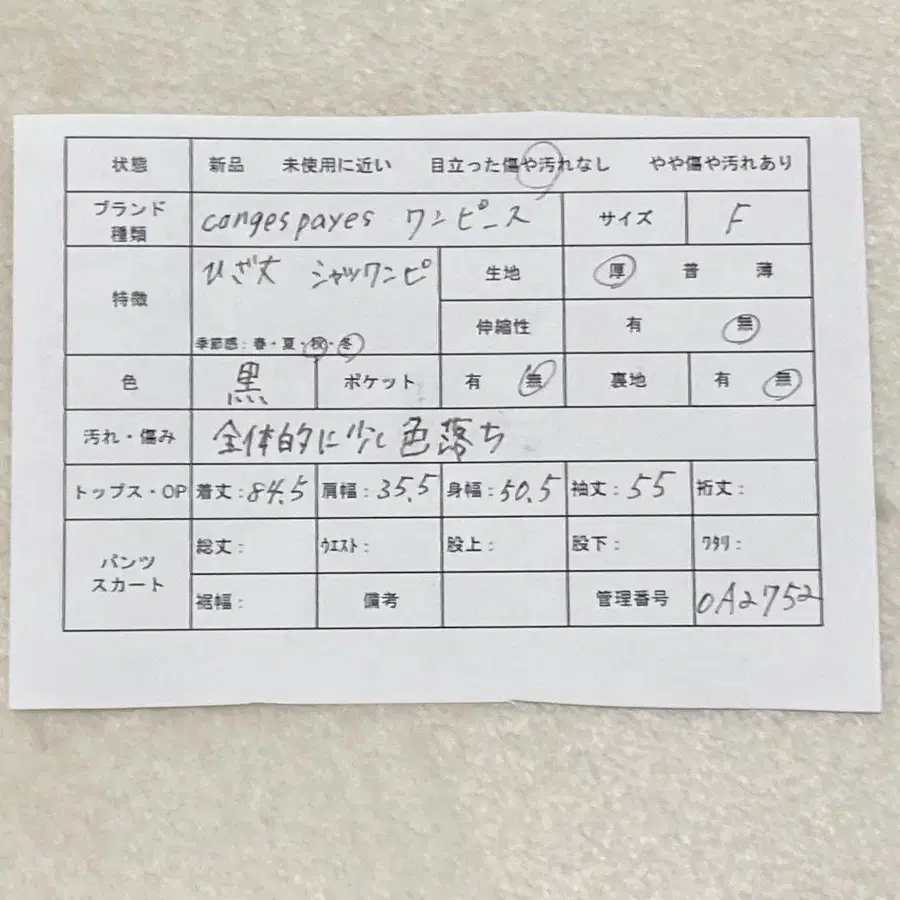 状態 新品 未使用に近い 目立った傷や汚れなし やや傷や汚れあり
ブランド
種類 congespayes ワンピース サイズ F
特徴 ひざ丈 シャツワンピ 生地 厚 普 薄
季節感：春・夏・秋・冬 伸縮性 有 無
色 黒 ポケット 有 無 裏地 有 無
汚れ・傷み 全体的に少し色落ち
トップス・OP 着丈：84.5 肩幅：35.5 身幅：50.5 袖丈：55 裄丈：
パンツ
スカート 総丈： ｳｴｽﾄ： 股上： 股下： ﾜﾀﾘ：
裾幅： 備考 管理番号 0A2752